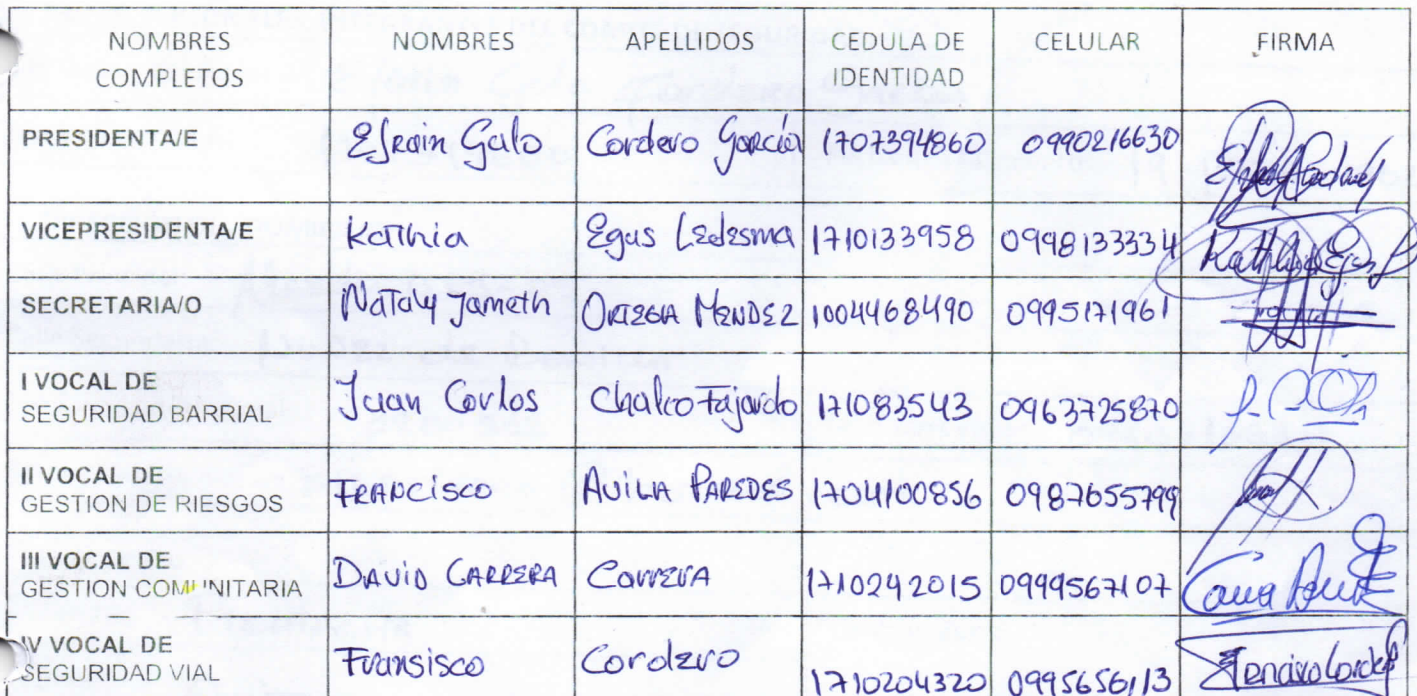 NOMBRES COMPLETOS NOMBRES APELLIDOS CEDULA DE IDENTIDAD CELULAR FIRMA
PRESIDENTA/E Efrain Galo Cordero García 1707394860 0990216630
VICEPRESIDENTA/E Katthia Egas Ledesma 1710133958 0998133334 Katthia Egas
SECRETARIA/O Nataly Jameth ORTEGA MENDEZ 1004468490 0995171961
I VOCAL DE
SEGURIDAD BARRIAL Juan Carlos Chalco Fajardo 171083543 0963725870
II VOCAL DE
GESTION DE RIESGOS FRANCISCO AVILA PAREDES 1704100856 0987655799
III VOCAL DE
GESTION COMUNITARIA DAVID CARRERA Carrera 1710242015 0999567107
IV VOCAL DE
SEGURIDAD VIAL Fransisco Cordero 1710204320 0995656113 Francisco Corder